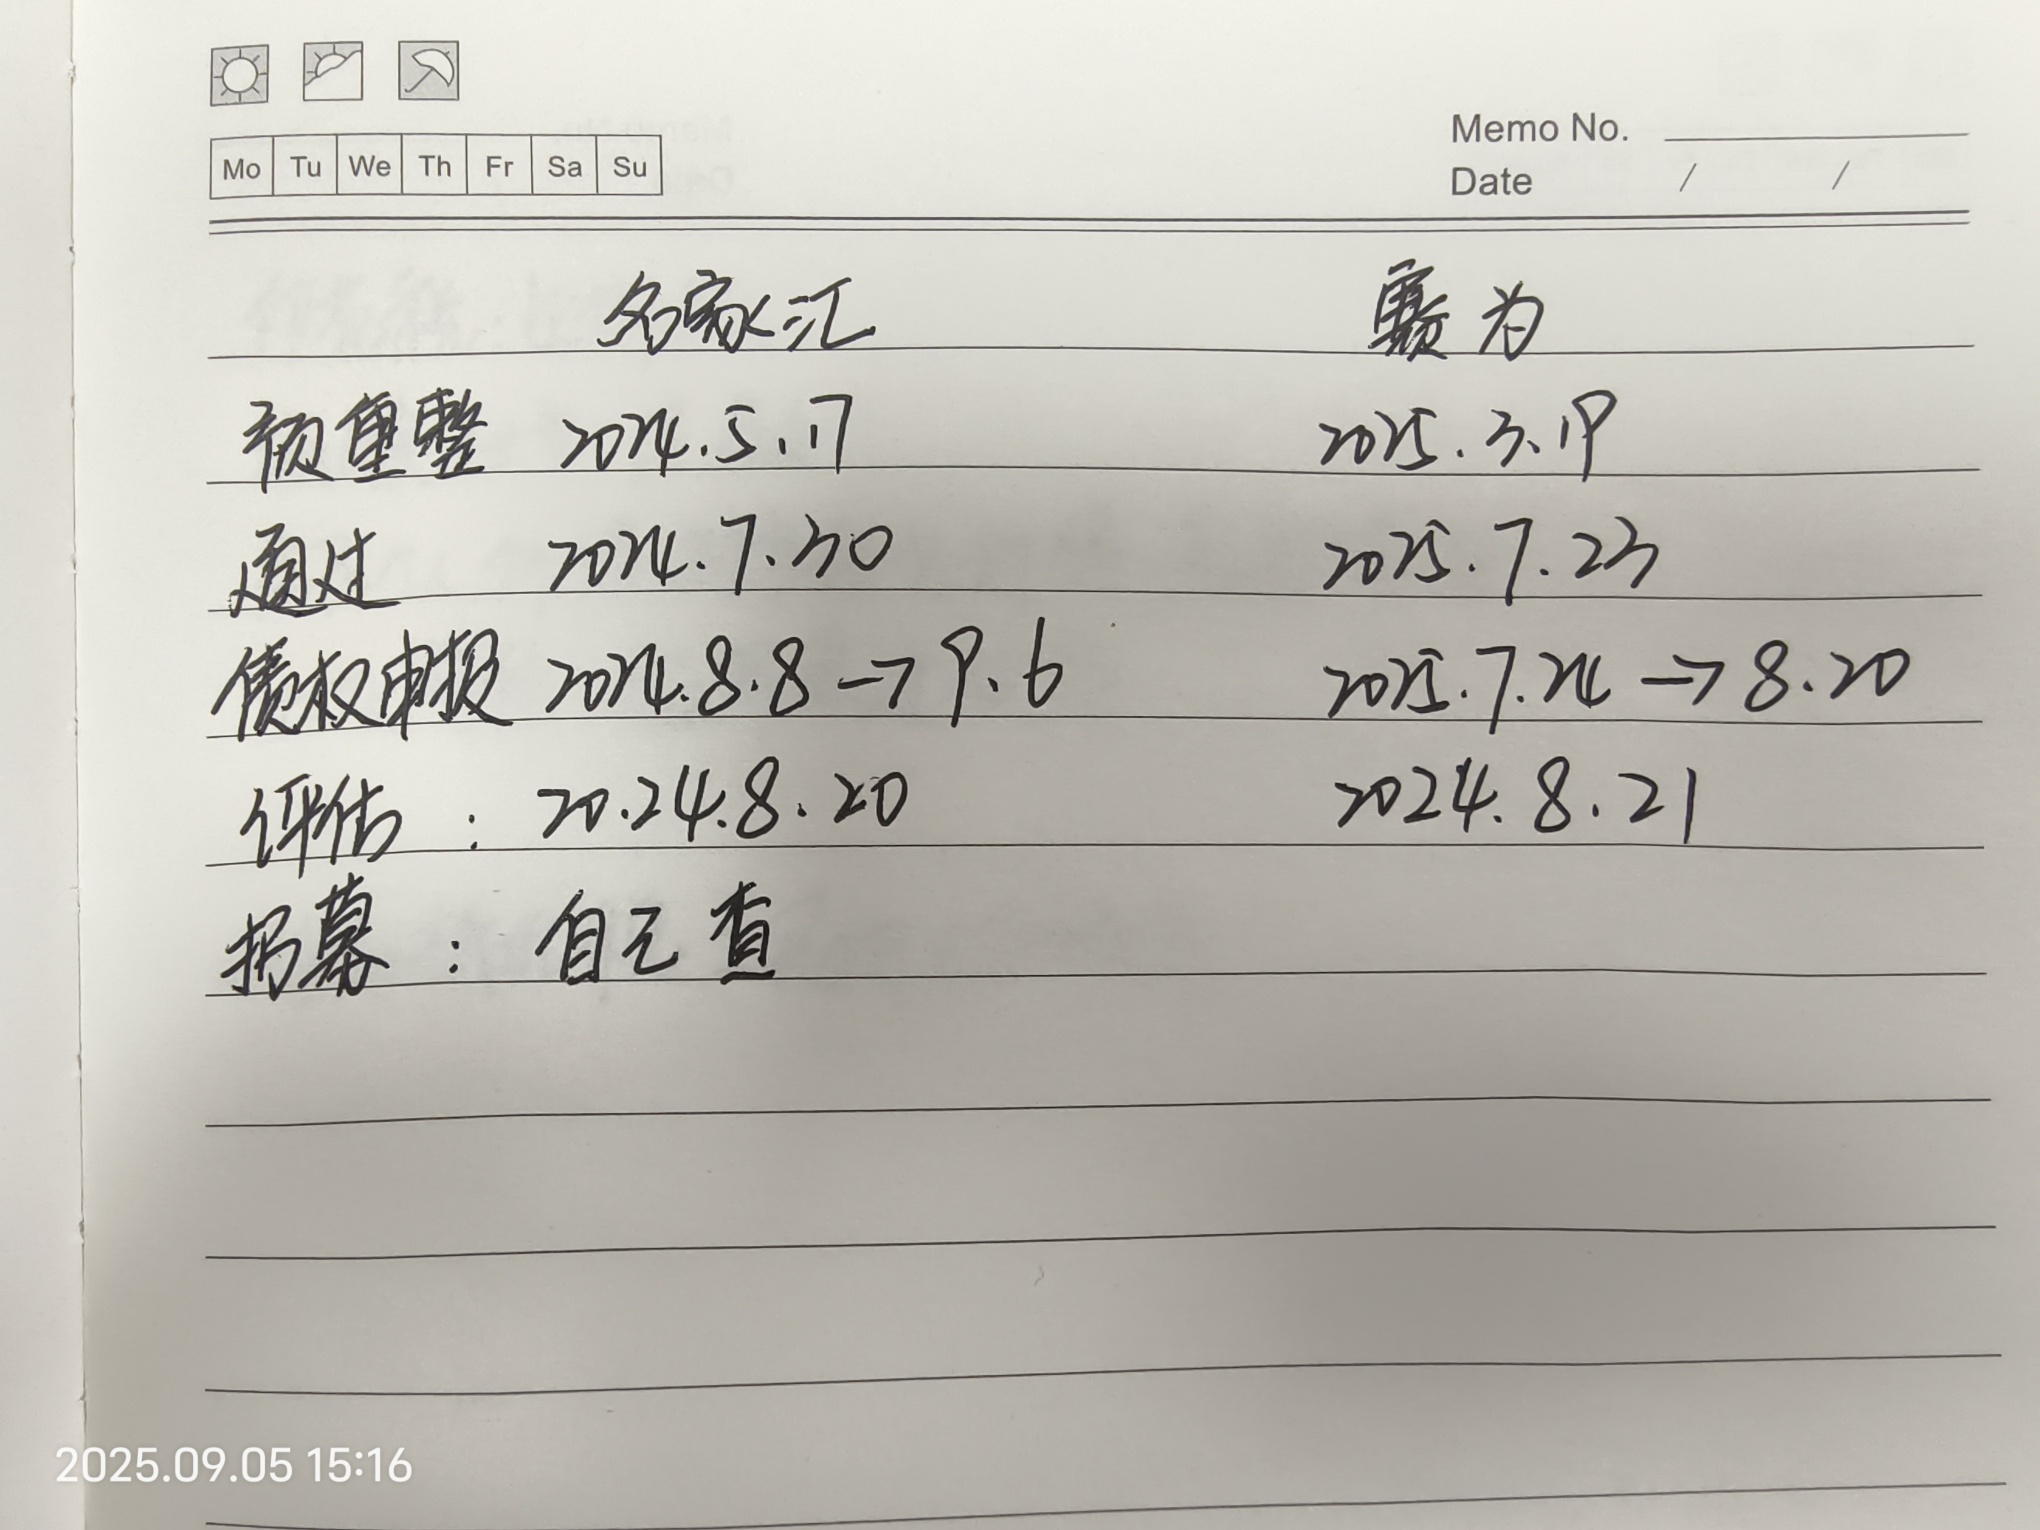 Mo Tu We Th Fr Sa Su
Memo No.
Date / /
名家汇 赛为
预重整 2024.5.17 2025.3.19
通过 2024.7.30 2025.7.23
债权申报 2024.8.8→9.6 2025.7.24→8.20
评估: 20.24.8.20 2024.8.21
招募: 自己查
2025.09.05 15:16